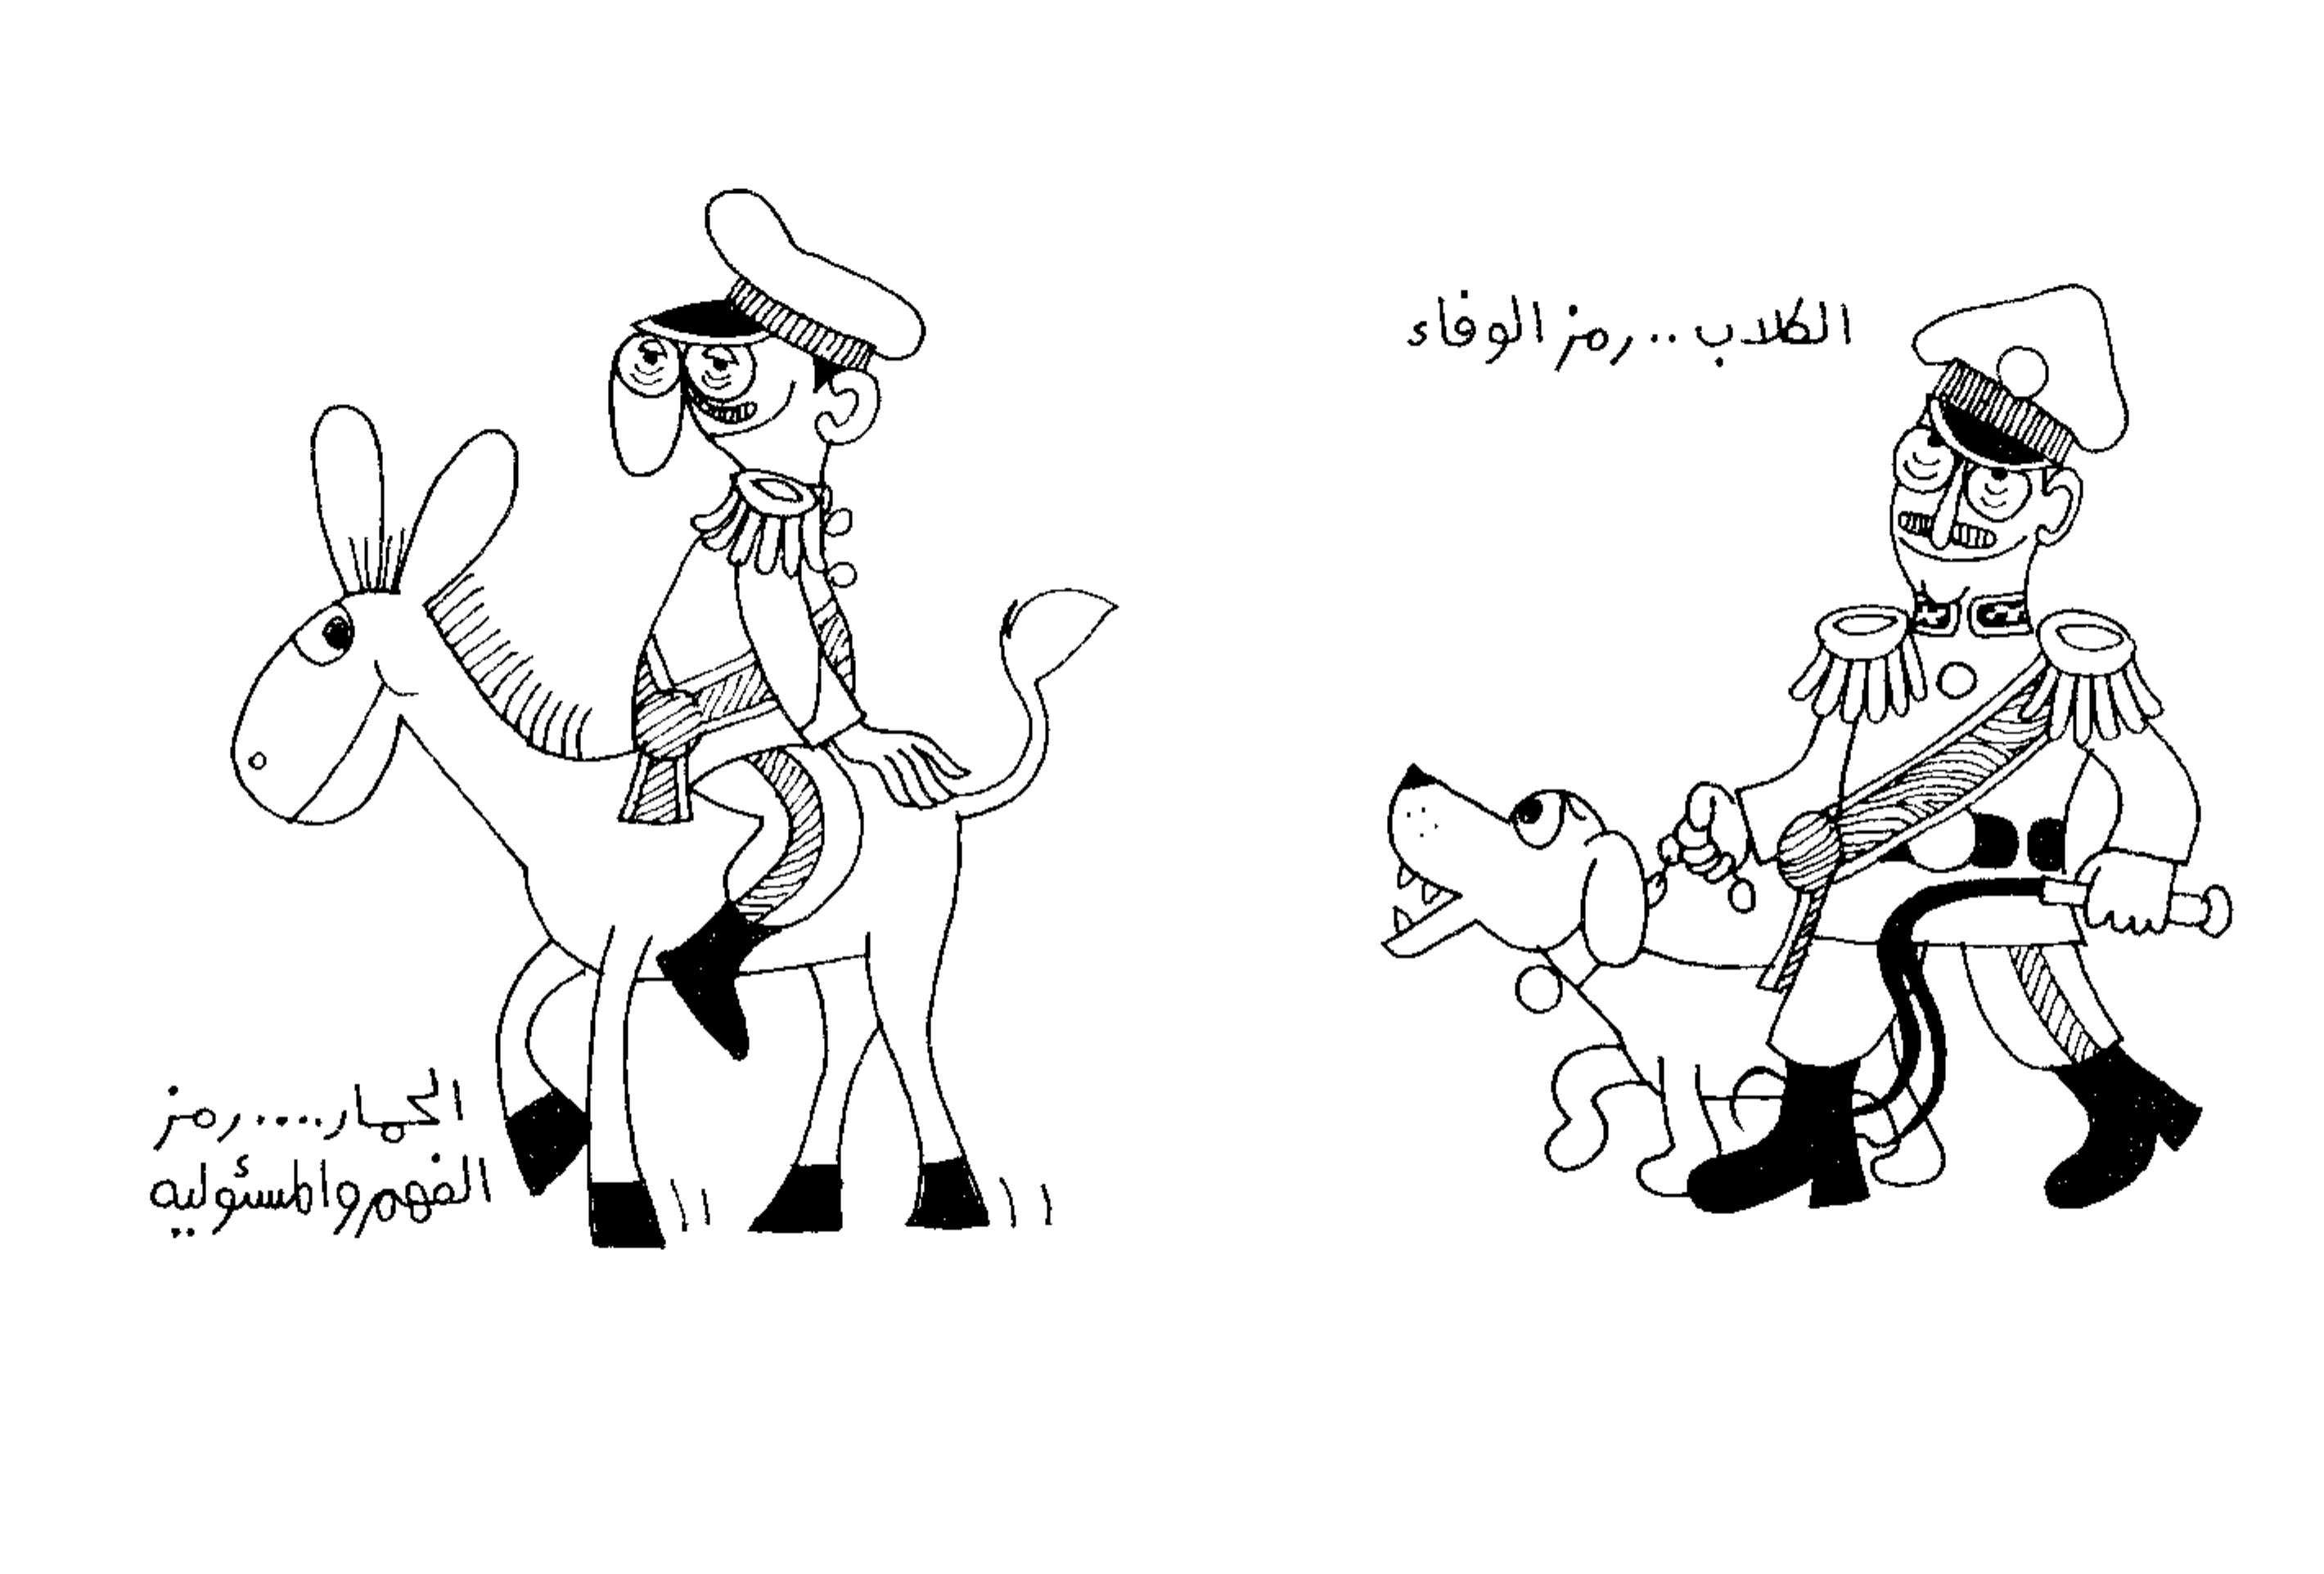 الكلاب .. رمز الوفاء
الحمار .... رمز
الفهم والمسئوليه